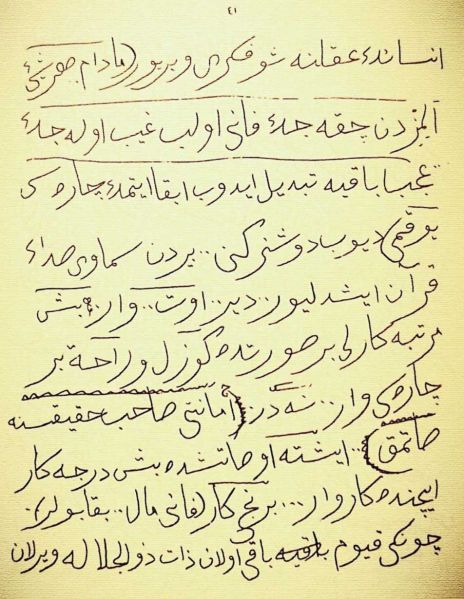 ٤١
انسانڭ عقلنه شو فكرى ويريور (مادام هر شيئ
المزدن چقه جق فانى اولوب غيب اوله جق
عجبا باقيه تبديل ايدوب ابقا ايتمك چاره سى
يوقمى) ديوب دوشنركن.. بردن سماوى صداء
قرآن ايشديليور.. دير.. اوت.. وار.. هم بش
مرتبه كارلى بر صورتده كوزل و راحة بر
چاره سى وار.. نه در (امانتى صاحب حقيقيسنه
صاتمق).. ايشته او صاتشده بش درجه كار
ايچنده كار وار... برنجى كار (فانى مال.. بقا بولور).
چونكى قيوم باقى اولان ذات ذو الجلاله ويريلان